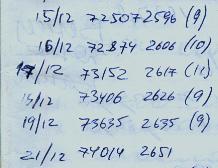 15/12 72507 2596 (9)
16/12 72874 2606 (10)
17/12 73152 2617 (11)
18/12 73406 2626 (9)
19/12 73635 2635 (9)
21/12 74014 2651